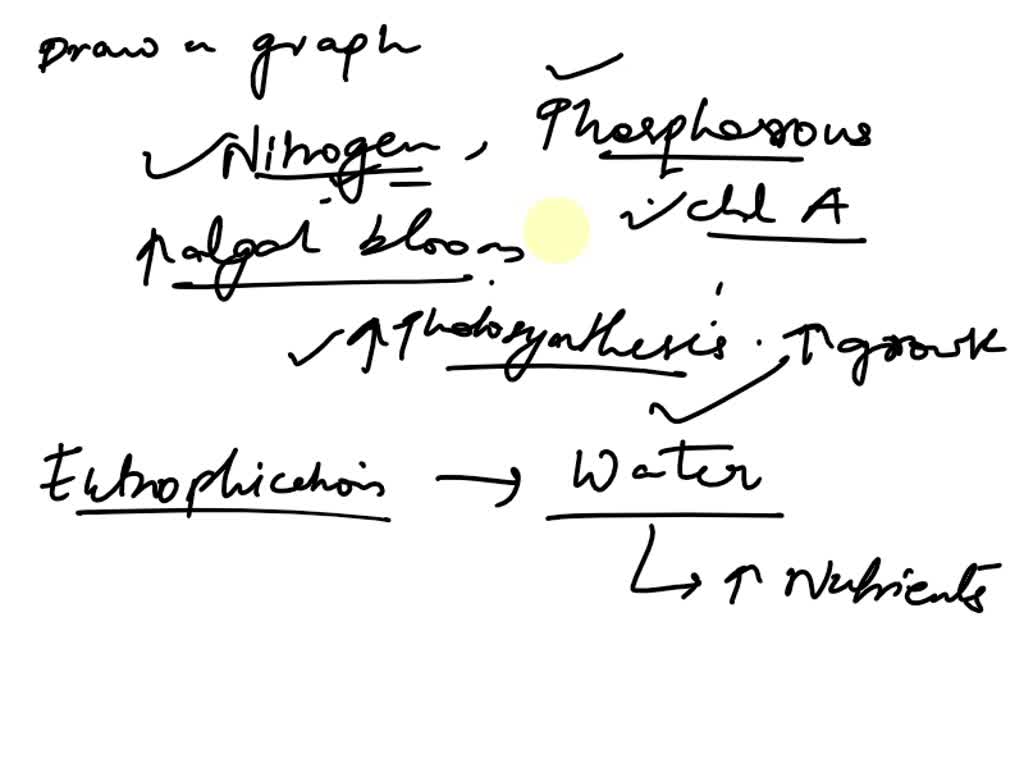 Draw a graph
Nitrogen, Phosphorous
↑ algal blooms chl A
↑ Photosynthesis. ↑ growth
Eutrophication → Water
↳ ↑ Nutrients